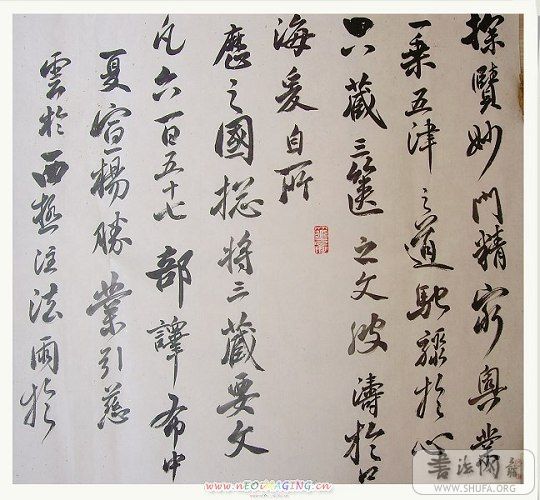 探賾妙門精窮奧業
一乘五律之道馳驟於心
八藏三篋之文波濤於口
海爰自所
歷之國揔將三藏要文
凡六百五十七部譯布中
夏宣揚勝業引慈
雲於西極注法雨於
www.nEOiMAGING.cn
書法网
WWW.SHUFA.ORG